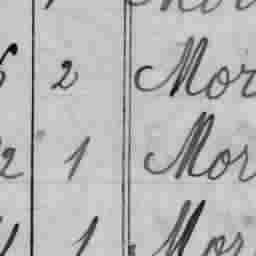 2 Mor
2 1 Mor
1 Mor